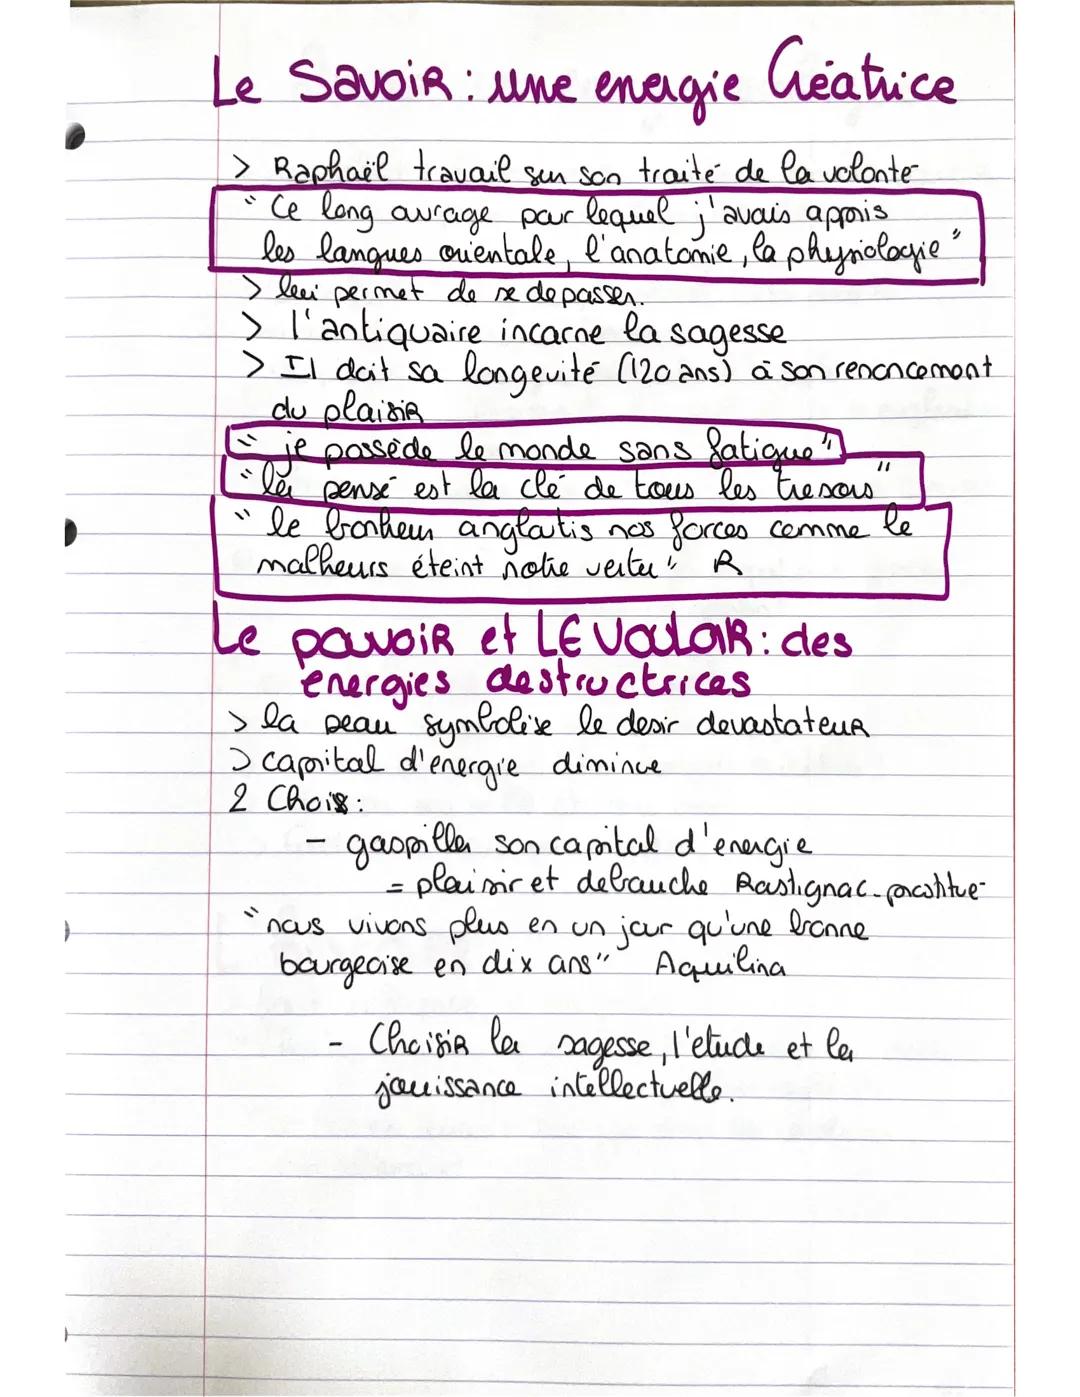 Le Savoir : une energie Créatrice
> Raphaël travail sur son traité de la volonté
"Ce long ouvrage pour lequel j'avais appris
les langues orientale, l'anatomie, la physiologie"
> lui permet de se depasser.
> l'antiquaire incarne la sagesse
> Il doit sa longevité (120 ans) à son renoncement
du plaisir
"je possède le monde sans fatigue"
"la pensé est la clé de tous les tresors"
"le bonheur angloutis nos forces comme le
malheurs éteint notre vertu" R
Le pouvoir et LE Vouloir : des
energies destructrices
> la peau symbolise le desir devastateur
> capital d'énergie diminue
2 Chois :
- gaspiller son capital d'energie
= plaisir et debauche Rastignac - prostitue
"nous vivons plus en un jour qu'une bonne
bourgeoise en dix ans" Aquilina
- Choisir la sagesse, l'etude et la
jouissance intellectuelle.